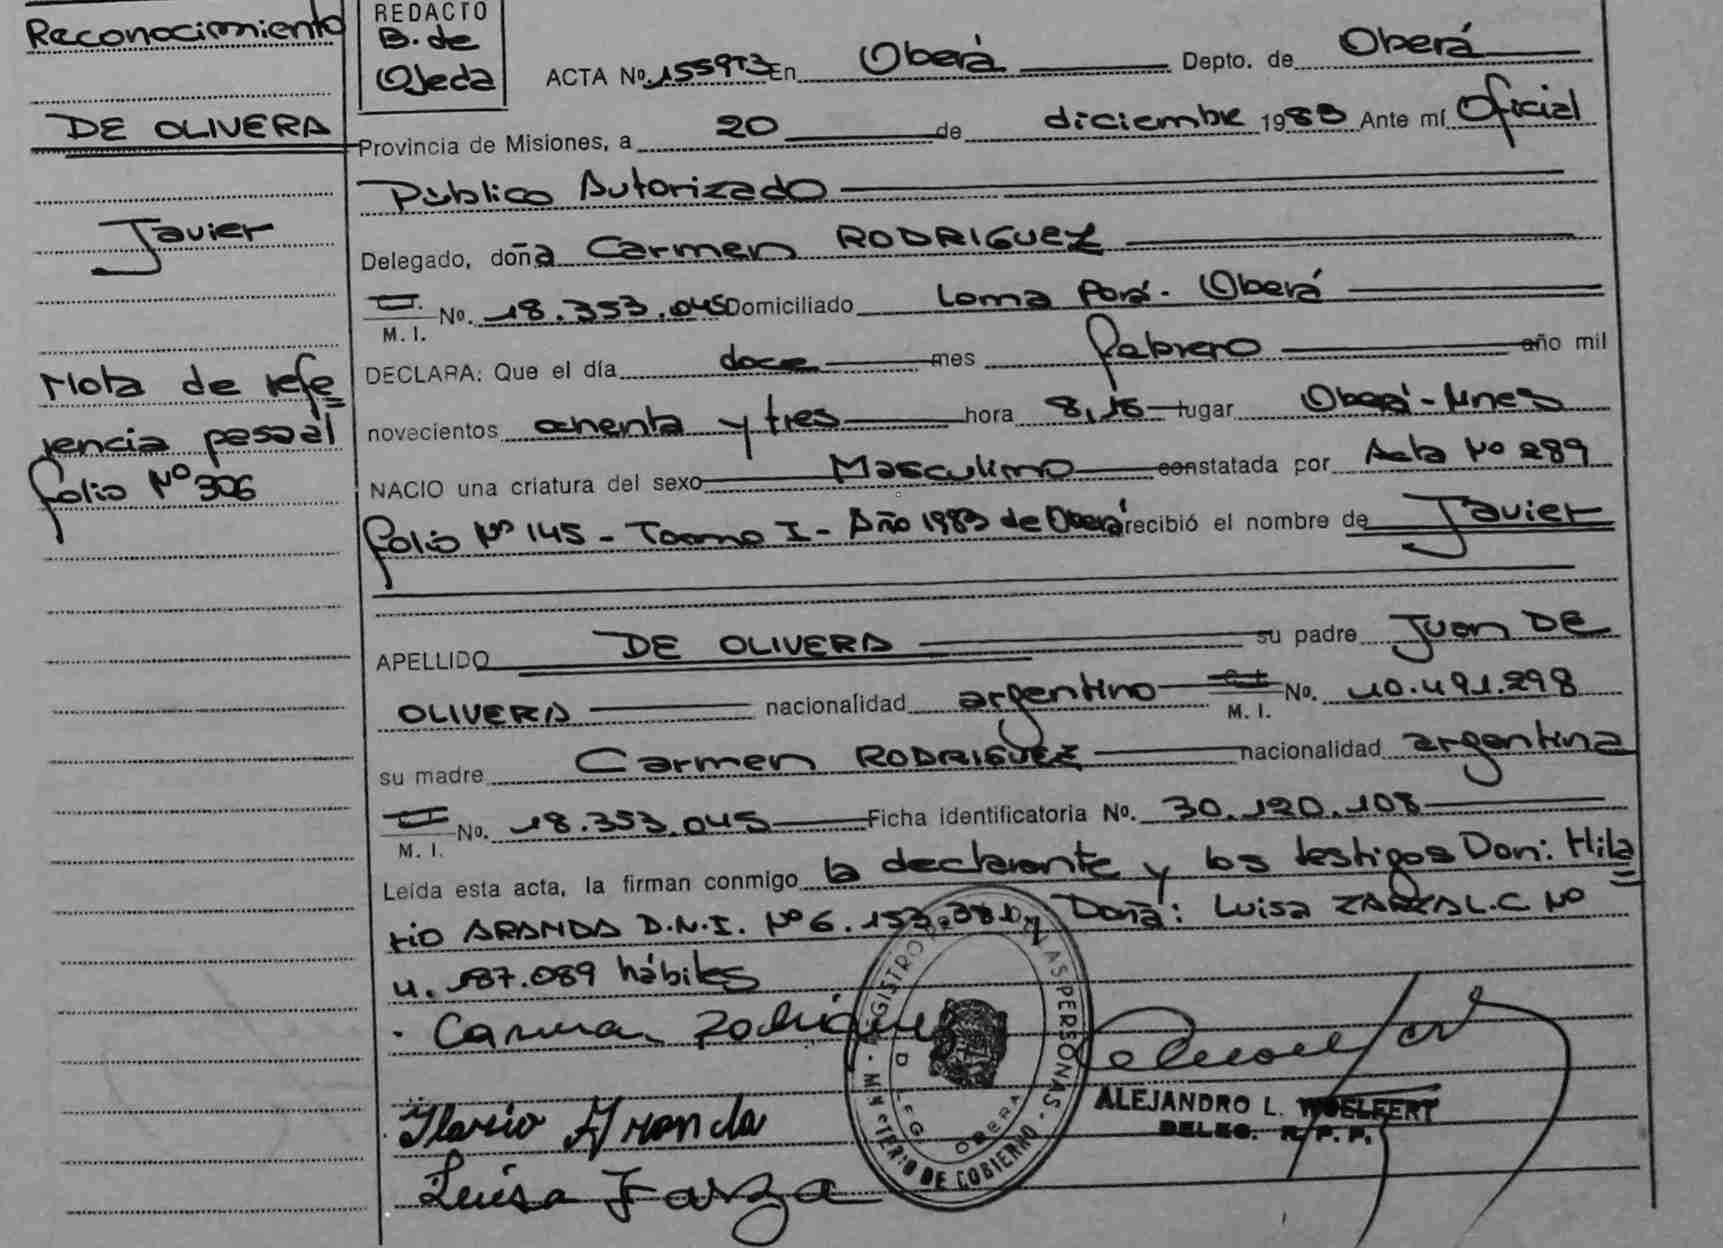 Reconocimiento
DE OLIVERA
Javier
Nota de refe
rencia pasa al
folio Nº 306
REDACTO
B. de
Ojeda
ACTA No. 1559T3 En Oberá Depto. de Oberá
Provincia de Misiones, a 20 de diciembre 1983 Ante mí Oficial
Público Autorizado
Delegado, doña Carmen RODRIGUEZ
M. I. No. 18.353.045 Domiciliado Loma Porá - Oberá
DECLARA: Que el día doce mes febrero año mil
novecientos ochenta y tres hora 8,15 lugar Oberá - Mnes
NACIO una criatura del sexo Masculino constatada por Acta Nº 289
folio Nº 145 - Tomo I - Año 1983 de Oberá recibió el nombre de Javier
APELLIDO DE OLIVERA su padre Juan DE
OLIVERA nacionalidad argentino M. I. No. 10.491.298
su madre Carmen RODRIGUEZ nacionalidad argentina
M. I. No. 18.353.045 Ficha identificatoria No. 30.120.108
Leída esta acta, la firman conmigo la declarante y los testigos Don: Hila
rio ARANDA D.N.I. Nº 6.153.381 y Doña: Luisa ZARZA L.C Nº
4.187.089 hábiles
Carmen Rodriguez
Ilario Aranda
Luisa Zarza
REGISTRO LAS PERSONAS - MINISTERIO DE GOBIERNO
DELEG. OBERA
ALEJANDRO L. WOELFERT
DELEG. R. P. P.